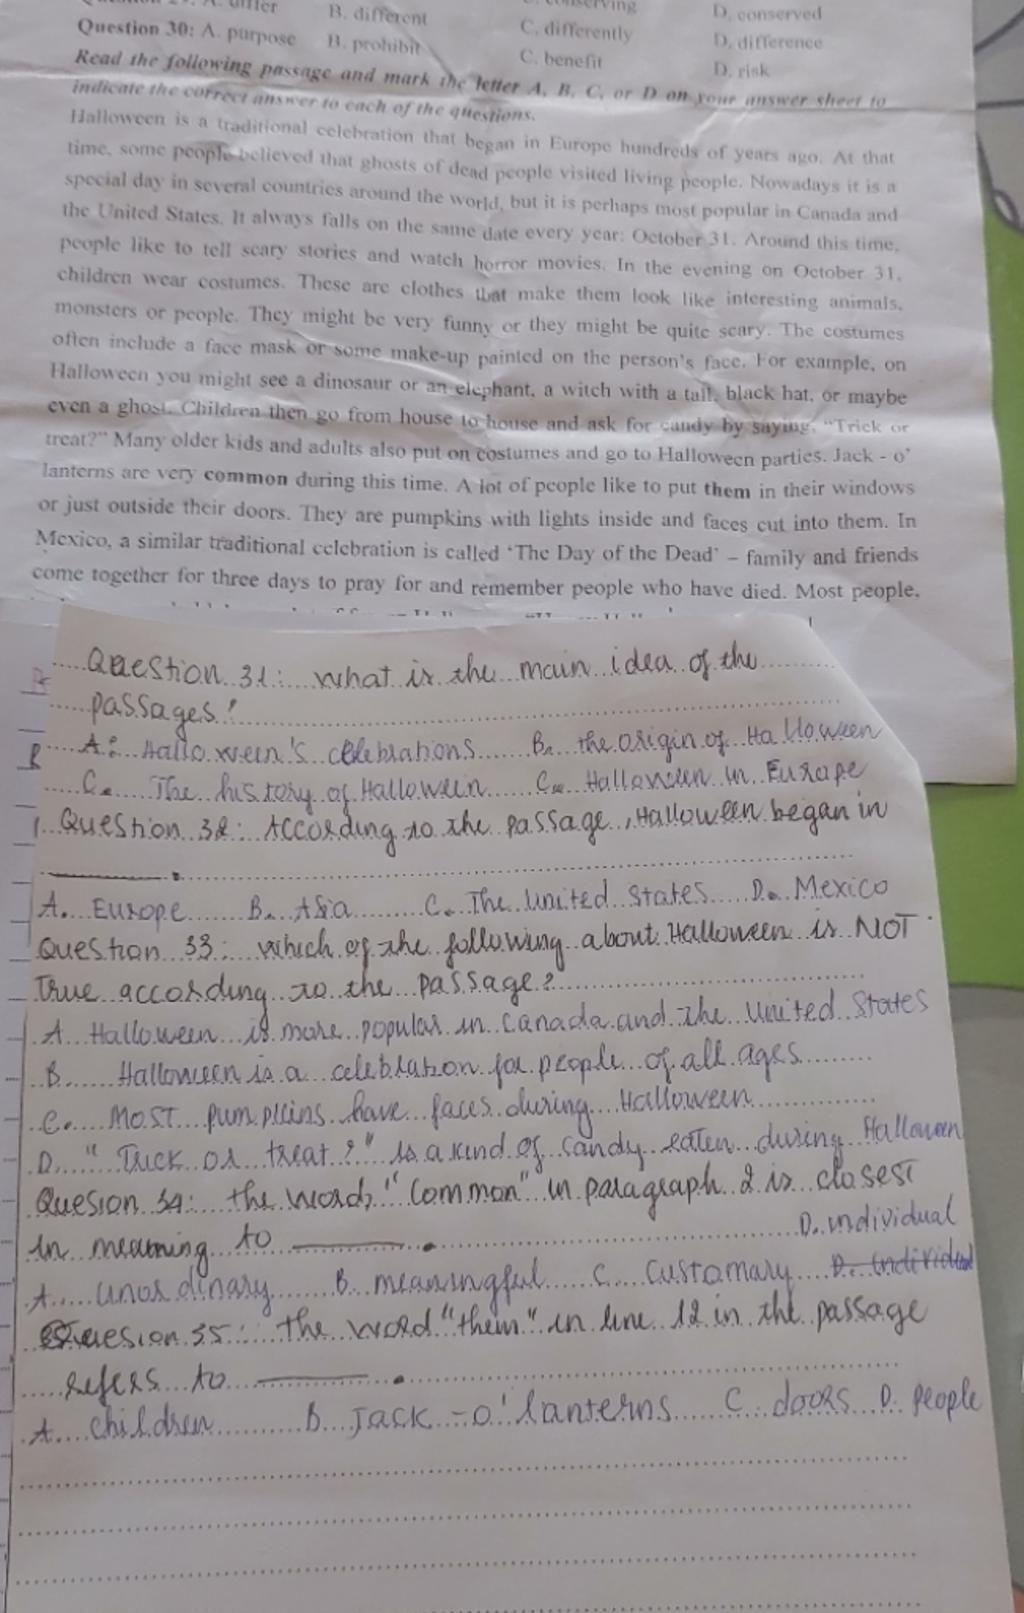 A. differ B. different D. conserved
Question 30: A. purpose B. prohibit C. differently D. difference
C. benefit D. risk
Read the following passage and mark the letter A, B, C, or D on your answer sheet to
indicate the correct answer to each of the questions.
Halloween is a traditional celebration that began in Europe hundreds of years ago. At that
time, some people believed that ghosts of dead people visited living people. Nowadays it is a
special day in several countries around the world, but it is perhaps most popular in Canada and
the United States. It always falls on the same date every year: October 31. Around this time,
people like to tell scary stories and watch horror movies. In the evening on October 31,
children wear costumes. These are clothes that make them look like interesting animals,
monsters or people. They might be very funny or they might be quite scary. The costumes
often include a face mask or some make-up painted on the person's face. For example, on
Halloween you might see a dinosaur or an elephant, a witch with a tall, black hat, or maybe
even a ghost. Children then go from house to house and ask for candy by saying, "Trick or
treat?" Many older kids and adults also put on costumes and go to Halloween parties. Jack - o'
lanterns are very common during this time. A lot of people like to put them in their windows
or just outside their doors. They are pumpkins with lights inside and faces cut into them. In
Mexico, a similar traditional celebration is called 'The Day of the Dead' – family and friends
come together for three days to pray for and remember people who have died. Most people,
Question 31: What is the main idea of the
passages?
A. Halloween's celebrations B. the origin of Halloween
C. The history of Halloween C. Halloween in Europe
Question 32: According to the passage, Halloween began in
A. Europe B. Asia C. The United States D. Mexico
Question 33: which of the following about Halloween is NOT
True according to the passage?
A. Halloween is more popular in Canada and the United States
B. Halloween is a celebration for people of all ages
C. MOST pumpkins have faces during Halloween
D. "Trick or treat?" is a kind of candy eaten during Halloween
Quesion 34: the word "Common" in paragraph 2 is closest
in meaning to ______.
D. individual
A. unordinary B. meaningful C. customary D. individual
Quesion 35: the word "them" in line 12 in the passage
refers to ______.
A. children B. Jack - o' lanterns C. doors D. people